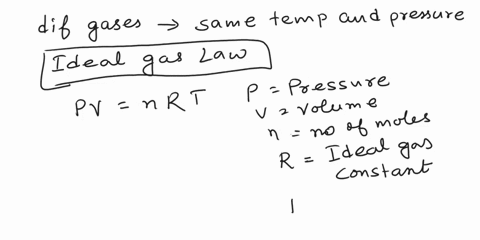 dif gases → same temp and pressure
Ideal gas Law
PV = nRT
P = Pressure
V = volume
n = no of moles
R = Ideal gas
constant